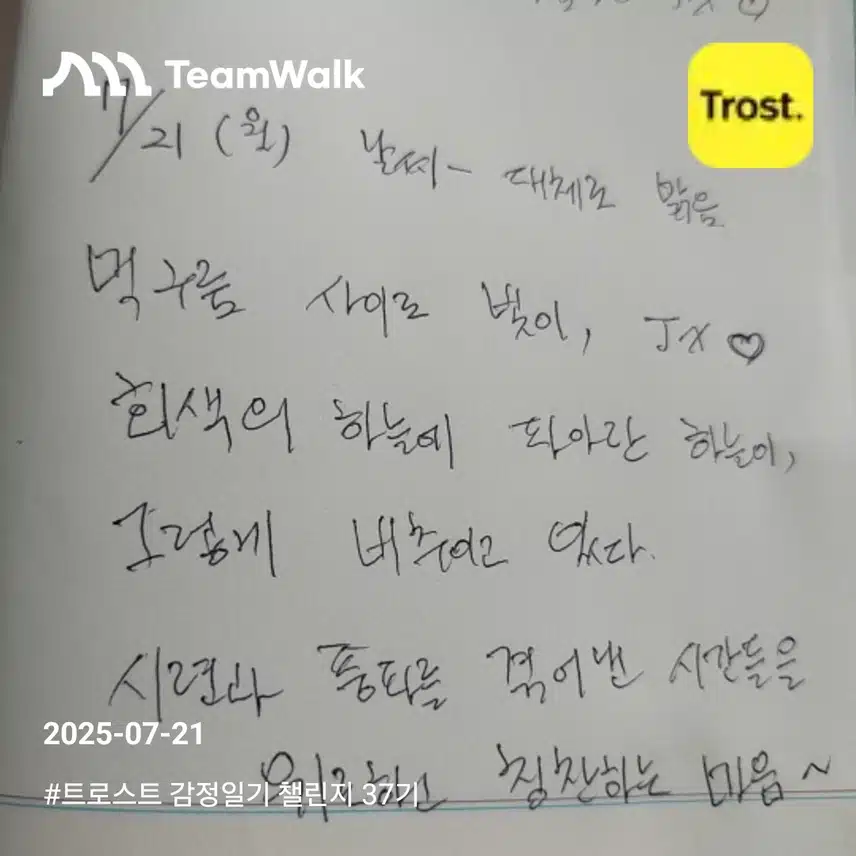 TeamWalk
Trost.
7/21 (월) 날씨- 대체로 맑음
먹구름 사이로 빛이, JX♡
회색의 하늘에 파아란 하늘이,
그렇게 비추이고 있다.
시련과 풍파를 겪어낸 시간들을
2025-07-21
위로하고 칭찬하는 마음~
#트로스트 감정일기 챌린지 37기